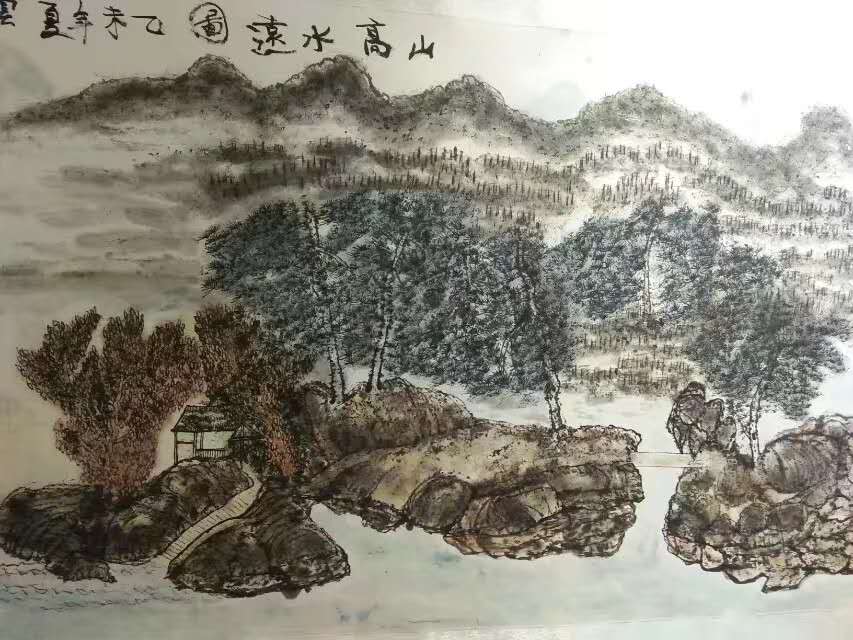 山高水遠圖乙未年夏